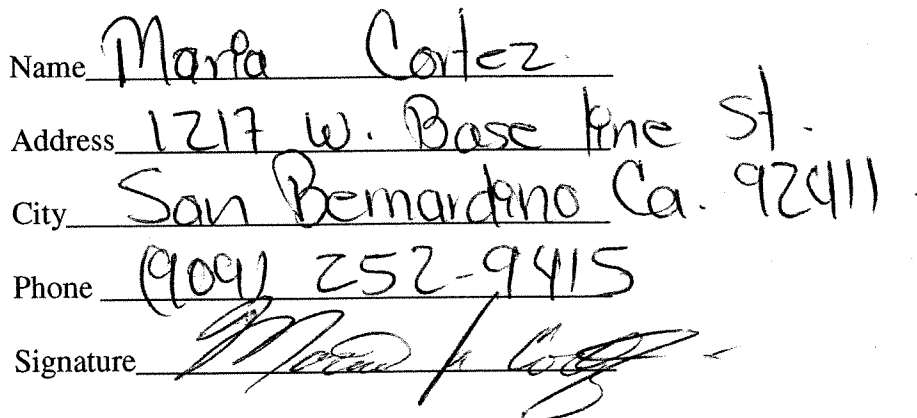 Name Maria Cortez.
Address 1217 W. Base line St.
City San Bernardino Ca. 92411
Phone (909) 252-9415
Signature Maria Cortez